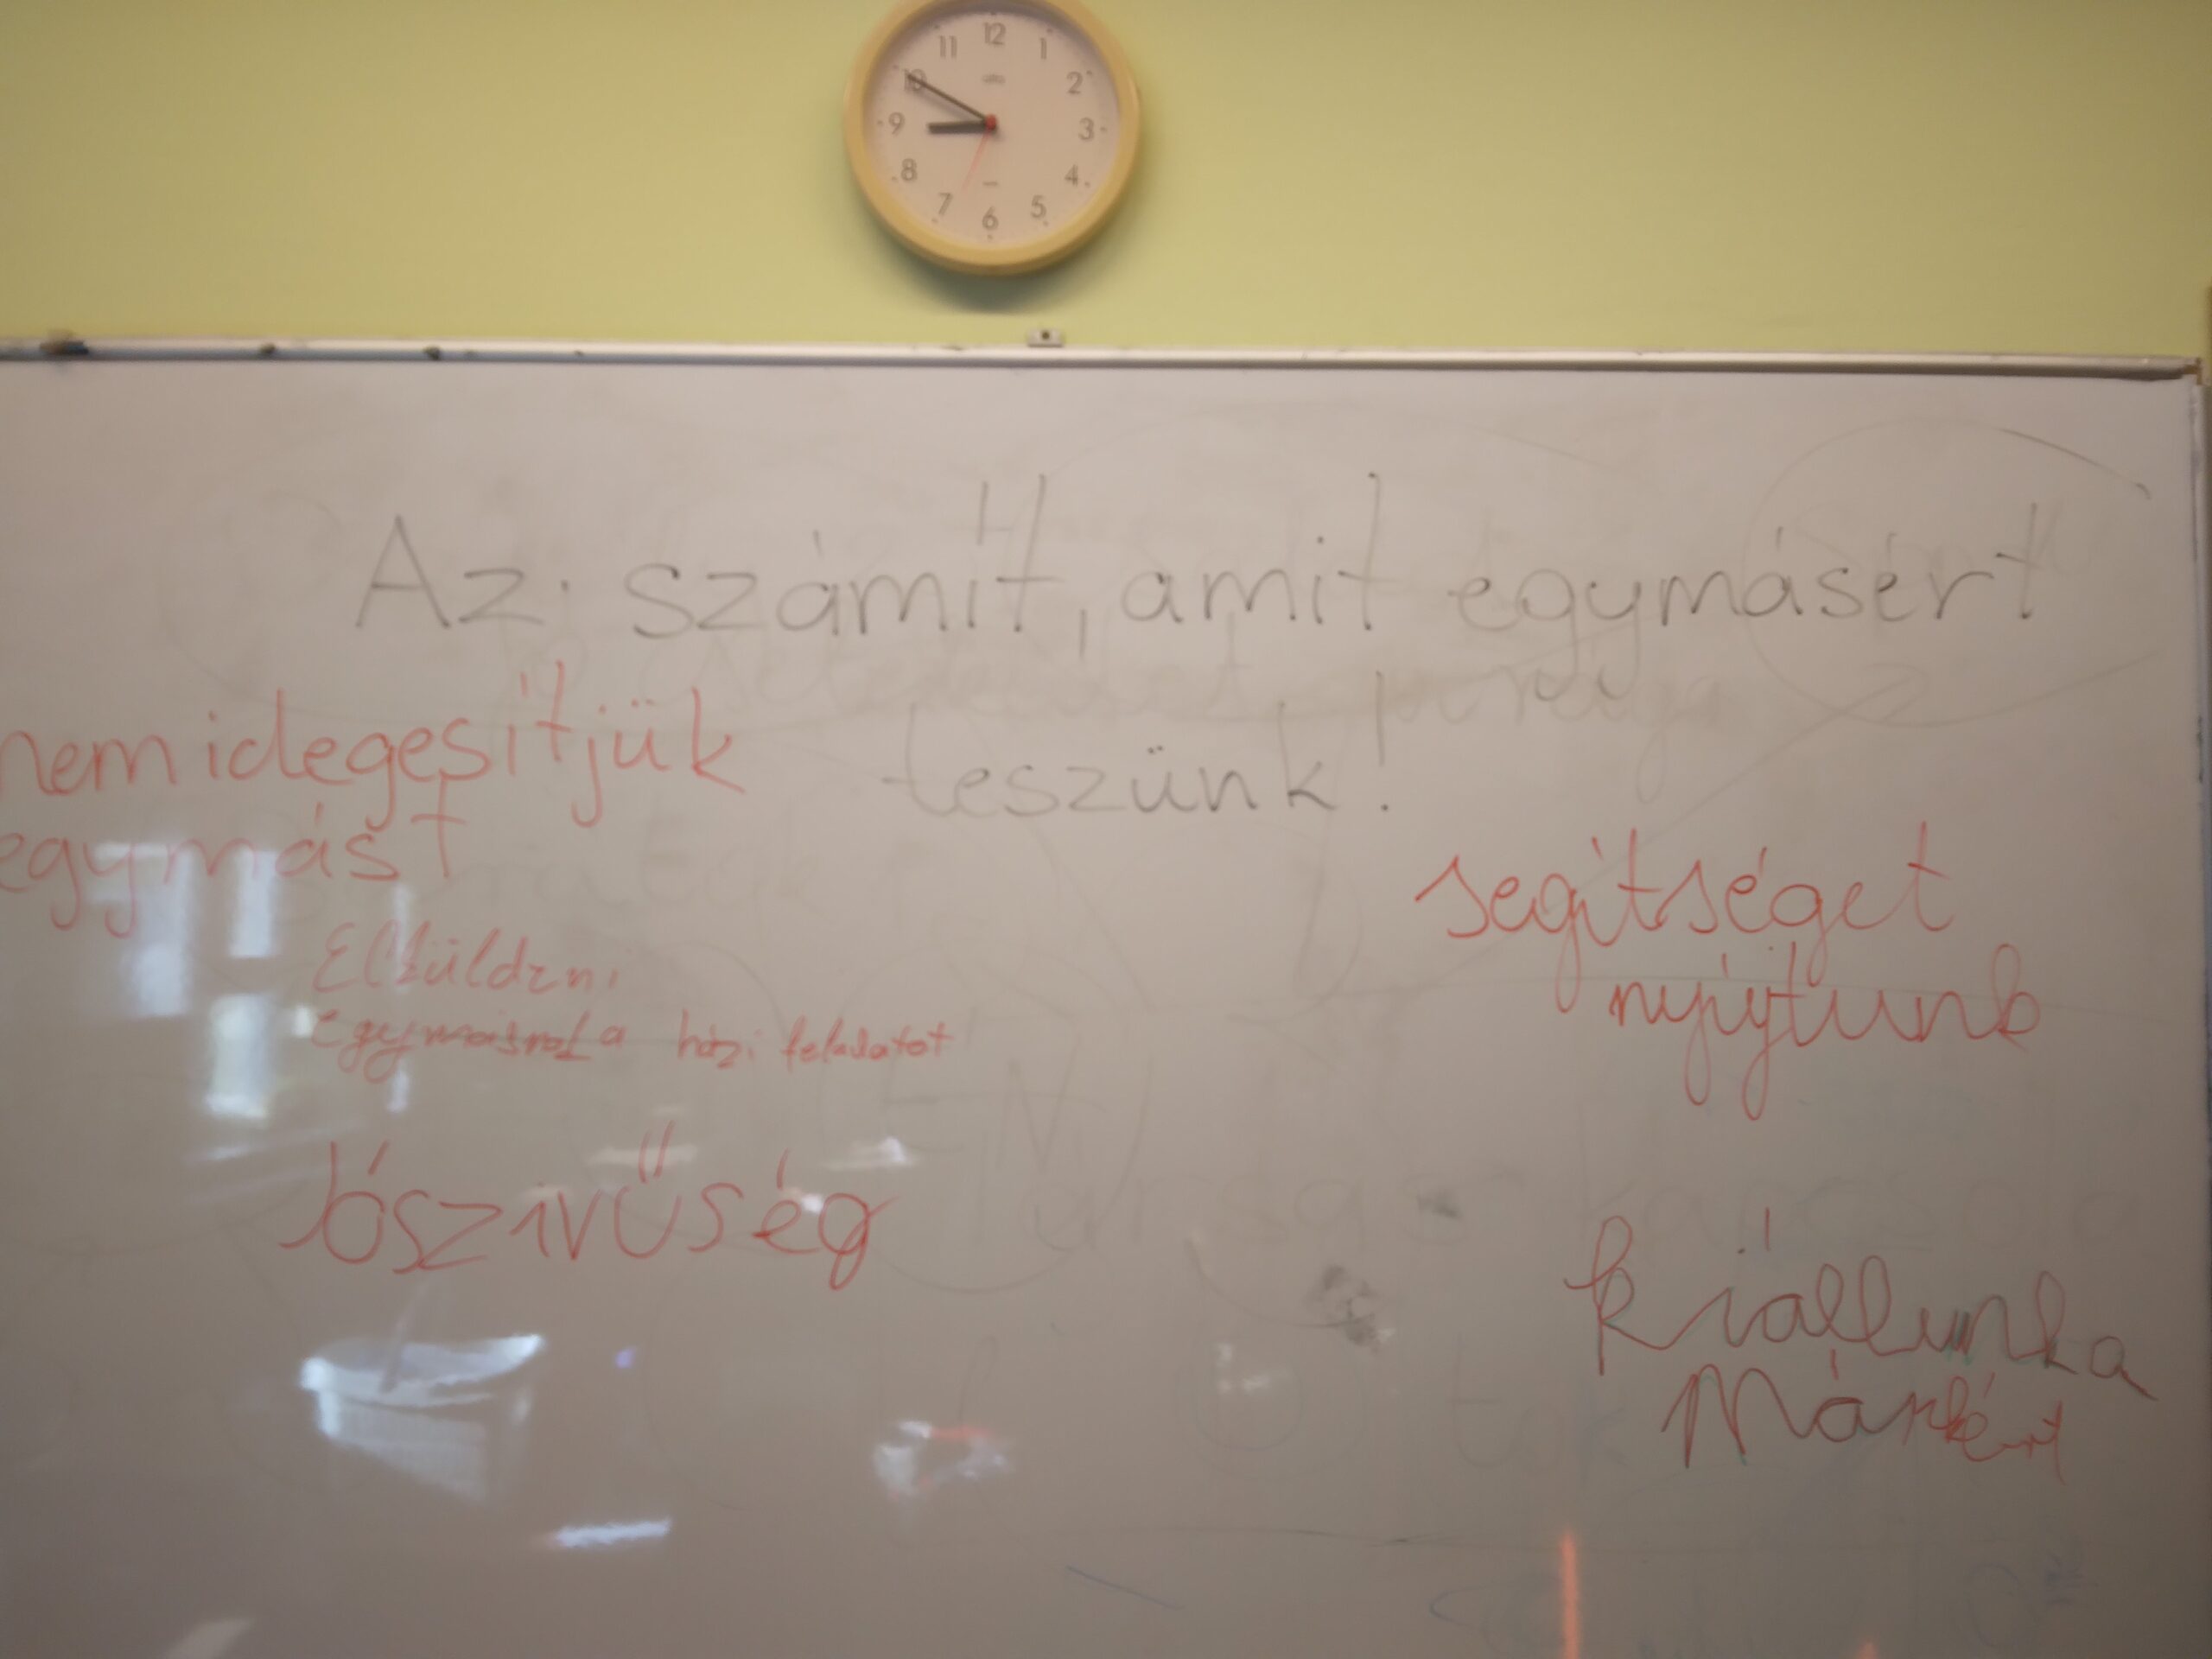 12
11
1
10
2
9
3
8
4
7
5
6
Az számít, amit egymásért
teszünk!
nem idegesítjük
egymást
Elküldeni
egymásnak a házi feladatot
segítséget
nyújtunk
Jószívűség
kiállunk a
Márkért